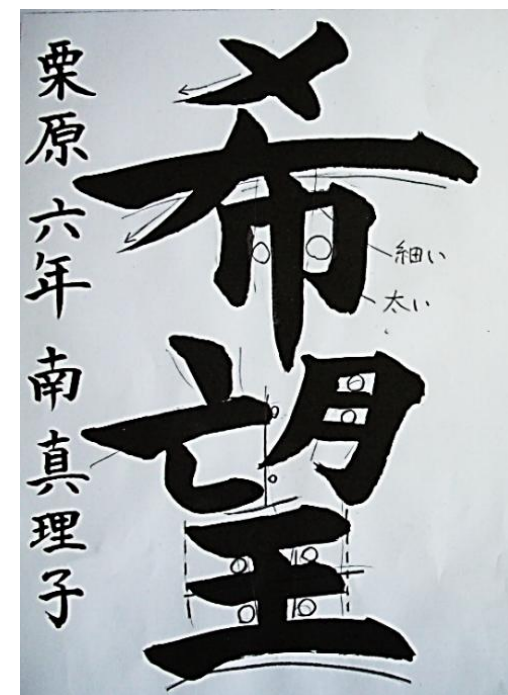 希望
細い
太い
栗原 六年 南 真理子